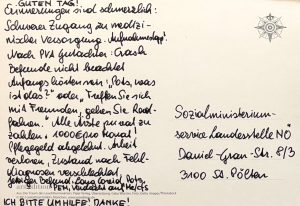 GUTEN TAG!
Erinnerungen sind schmerzlich:
Schwerer Zugang zu medizi-
nischer Versorgung. Aufnahmestopp.
Nach PVA Gutachter: Crash
Befunde nicht beachtet
Anfangs hörten wir: "Pots, was
ist das?" oder "Treffen Sie sich
mit Freunden, gehen Sie Rad-
fahren." Alle Ärzte privat zu
zahlen. 1000€ pro Monat!
Pflegegeld abgelehnt. Arbeit
verloren, Zustand nach Fehl-
diagnosen verschlechtert,
jetziger Befund: Long Covid, Pots,
PEM, Verdacht auf Me/Cfs
ICH BITTE UM HILFE! DANKE!
Sozialministerium-
service Landesstelle NÖ
Daniel-Gran-Str. 8/3
3100 St. Pölten